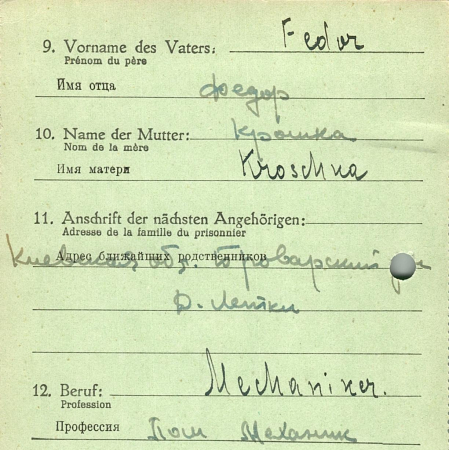 9. Vorname des Vaters: Fedor
Prénom du père
Имя отца Федор
10. Name der Mutter: Крошка
Nom de la mère
Имя матери Kroschka
11. Anschrift der nächsten Angehörigen:
Adresse de la famille du prisonnier
Адрес ближайших родственников
Киевская обл. Броварский
Д. Летки
12. Beruf: Mechaniker.
Profession
Профессия Пом Механик